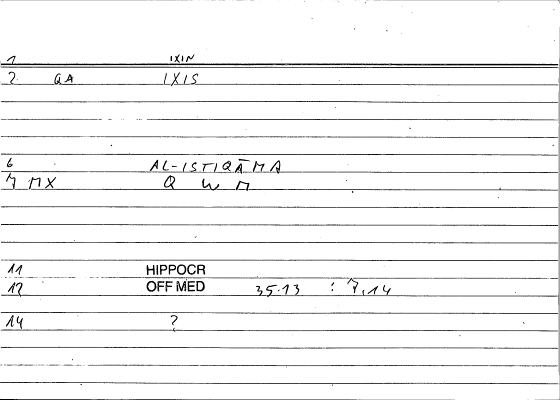 1 IXIN
2 QA IXIS
6 AL-ISTIQĀMA
7 MX Q W M
11 HIPPOCR
12 OFF MED 35.13 : 7,14
14 ?